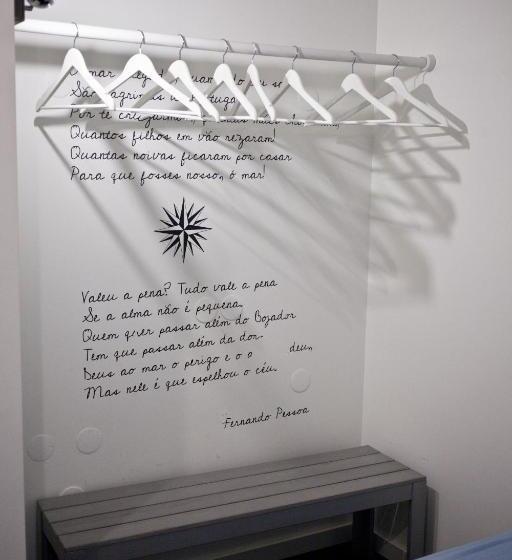 mar
São lágrimas
Por te cruzarmos,
Quantos filhos em vão rezaram!
Quantas noivas ficaram por casar
Para que fosses nosso, ó mar!
Valeu a pena? Tudo vale a pena
Se a alma não é pequena.
Quem quer passar além do Bojador
Tem que passar além da dor.
Deus ao mar o perigo e o deu,
Mas nele é que espelhou o céu.
Fernando Pessoa